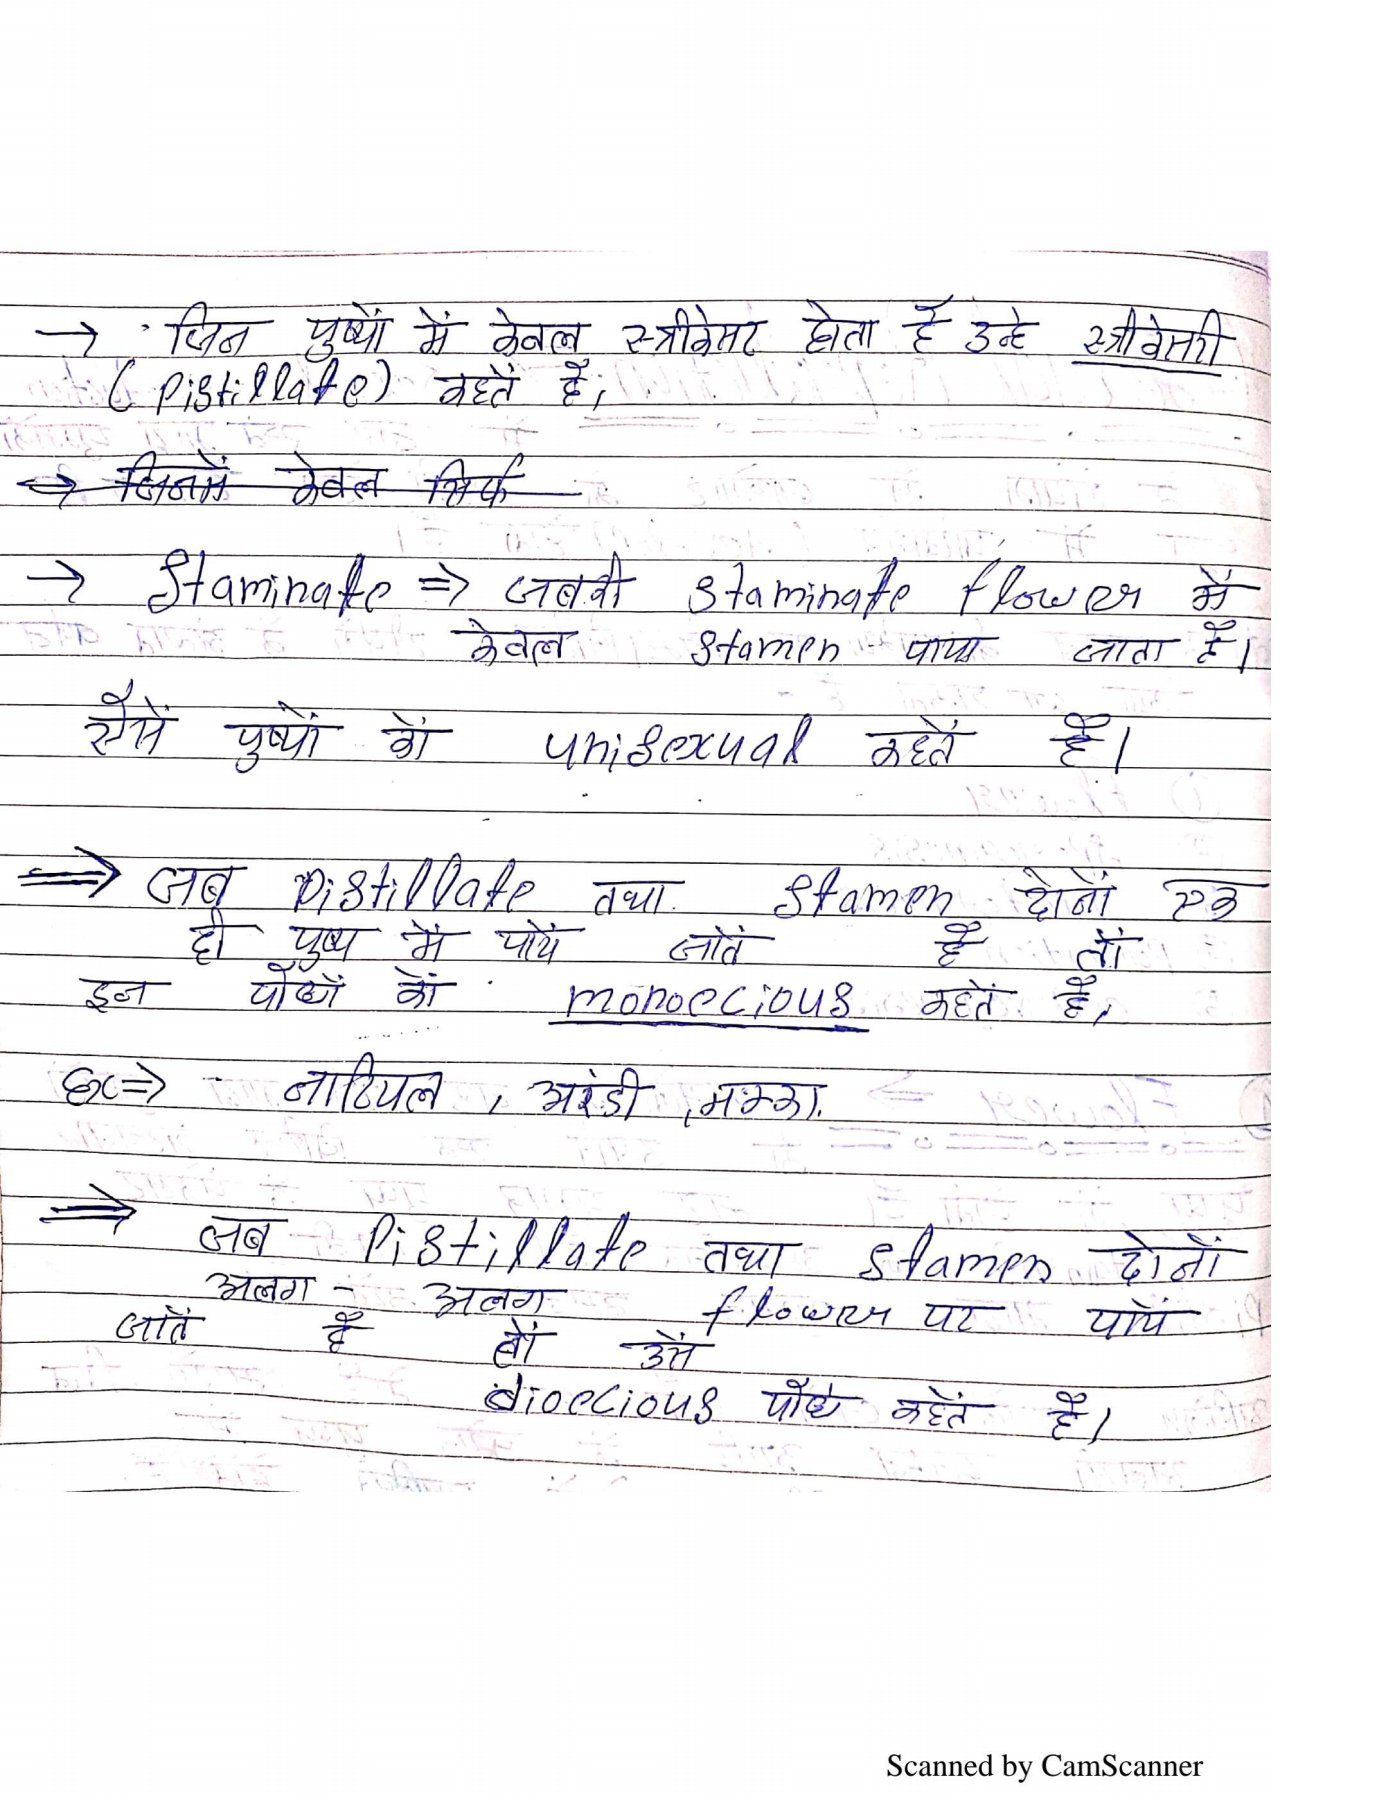 → जिन पुष्पों में केवल स्त्रीकेसर होता हैं उन्हे स्त्रीकेसरी
(Pistillate) कहतें हैं,
→ जिनमें केवल सिर्फ
→ Staminate ⇒ जबकी staminate flower में
केवल stamen पाया जाता हैं।
ऐसें पुष्पों कों unisexual कहतें हैं।
⇒ जब Pistillate तथा stamen दोनों एक
ही पुष्प में पायें जातें हैं तों
इन पौधों कों monoecious कहतें हैं,
Ex⇒ नारियल, अरंडी, मक्का.
⇒ जब Pistillate तथा stamen दोनों
अलग - अलग flower पर पायें
जातें हैं तों उसें
dioecious पौधे कहतें हैं।
Scanned by CamScanner